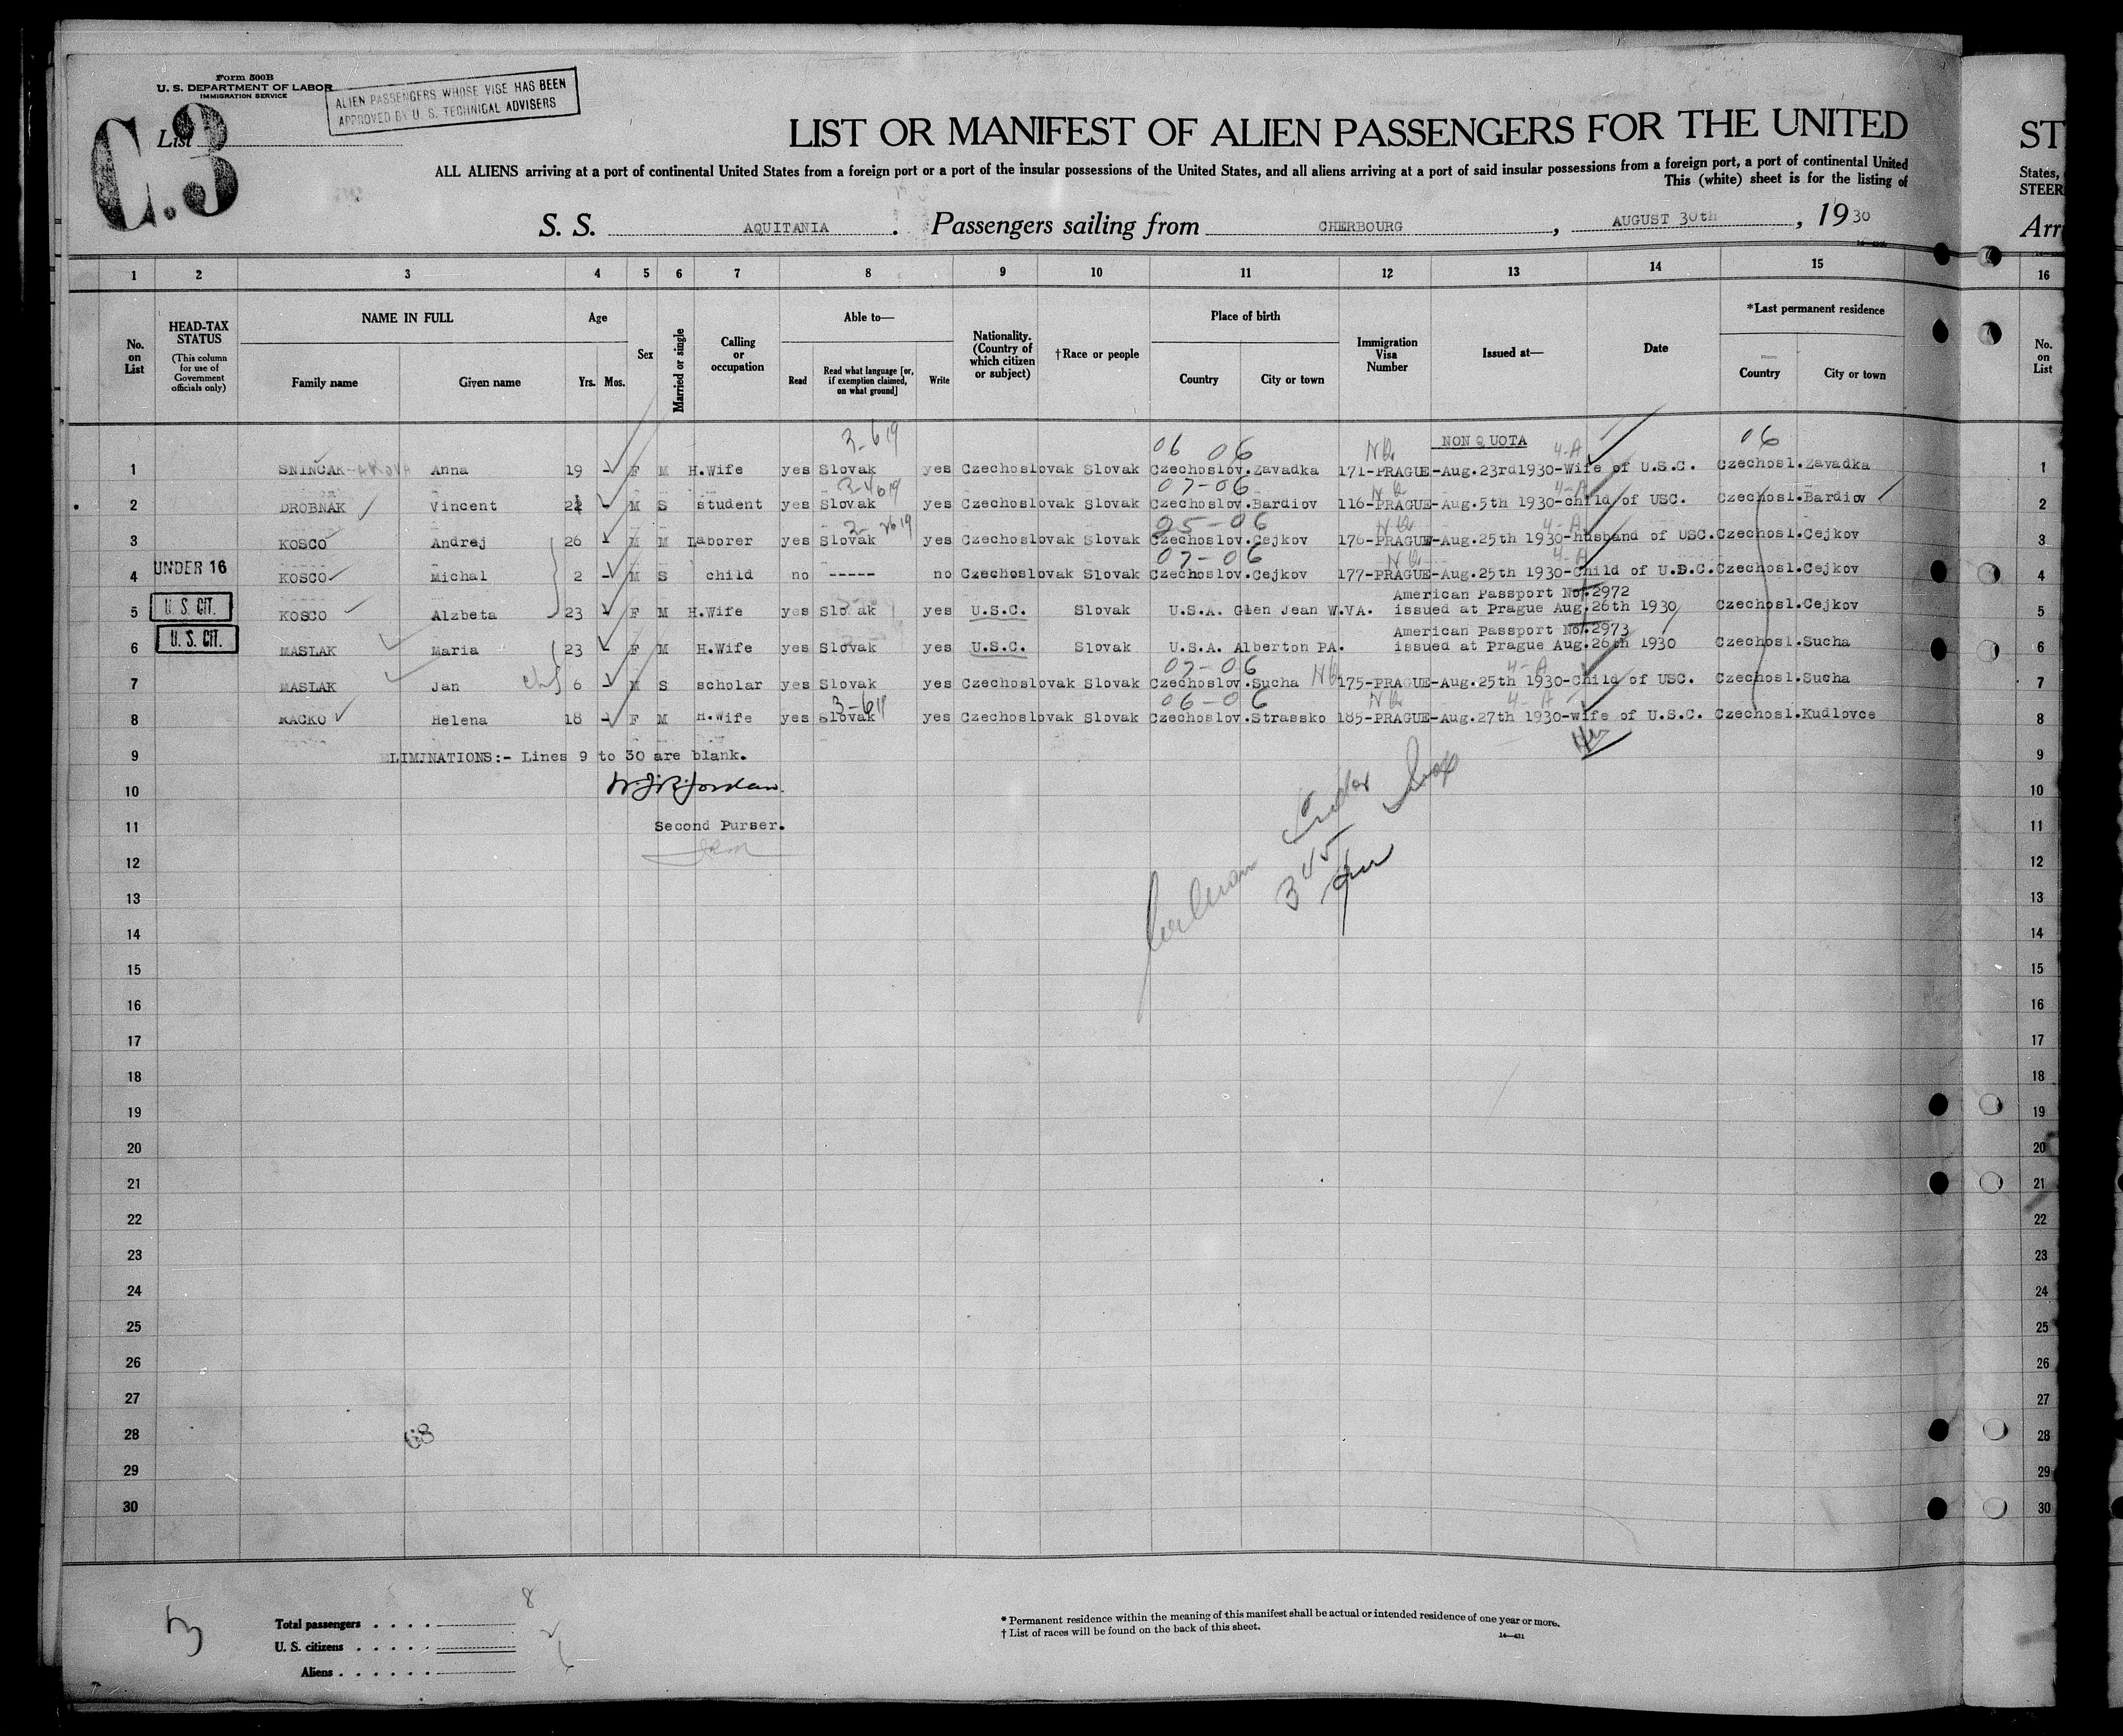 Form 500B
U. S. DEPARTMENT OF LABOR
IMMIGRATION SERVICE
ALIEN PASSENGERS WHOSE VISE HAS BEEN
APPROVED BY U. S. TECHNICAL ADVISERS
List
C.3
LIST OR MANIFEST OF ALIEN PASSENGERS FOR THE UNITED
ST
ALL ALIENS arriving at a port of continental United States from a foreign port or a port of the insular possessions of the United States, and all aliens arriving at a port of said insular possessions from a foreign port, a port of continental United
States,
This (white) sheet is for the listing of
STEER
S. S. AQUITANIA . Passengers sailing from CHERBOURG , AUGUST 30th , 1930
Arr
1 2 3 4 5 6 7 8 9 10 11 12 13 14 15 16
No. on List
HEAD-TAX STATUS
(This column for use of Government officials only)
NAME IN FULL
Family name
Given name
Age
Yrs. Mos.
Sex
Married or single
Calling or occupation
Able to—
Read
Read what language [or, if exemption claimed, on what ground]
Write
Nationality. (Country of which citizen or subject)
†Race or people
Place of birth
Country
City or town
Immigration Visa Number
Issued at—
Date
*Last permanent residence
Country
City or town
No. on List
3-619 06 06 NQ NON QUOTA 4-A 06
1 SNINCAK-AKOVA Anna 19 - F M H.Wife yes Slovak yes Czechoslovak Slovak Czechoslov.Zavadka 171-PRAGUE-Aug.23rd1930-Wife of U.S.C. Czechosl.Zavadka 1
07-06 NQ 4-A
2 DROBNAK Vincent 21 - M S student yes Slovak yes Czechoslovak Slovak Czechoslov.Bardiov 116-PRAGUE-Aug.5th 1930-child of USC. Czechosl.Bardiov 2
05-06 NQ 4-A
3 KOSCO Andrej 26 - M M Laborer yes Slovak yes Czechoslovak Slovak Czechoslov.Cejkov 176-PRAGUE-Aug.25th 1930-husband of USC.Czechosl.Cejkov 3
UNDER 16 07-06 NQ 4-A
4 KOSCO Michal 2 - M S child no ----- no Czechoslovak Slovak Czechoslov.Cejkov 177-PRAGUE-Aug.25th 1930-Child of U.S.C.Czechosl.Cejkov 4
American Passport No.2972
5 U. S. CIT. KOSCO Alzbeta 23 - F M H.Wife yes Slovak yes U.S.C. Slovak U.S.A. Glen Jean W.VA. issued at Prague Aug.26th 1930 Czechosl.Cejkov 5
American Passport No.2973
6 U. S. CIT. MASLAK Maria 23 - F M H.Wife yes Slovak yes U.S.C. Slovak U.S.A. Alberton PA. issued at Prague Aug.26th 1930 Czechosl.Sucha 6
07-06 NQ 4-A
7 MASLAK Jan 6 - M S scholar yes Slovak yes Czechoslovak Slovak Czechoslov.Sucha 175-PRAGUE-Aug.25th 1930-Child of USC. Czechosl.Sucha 7
3-619 06-06 NQ 4-A
8 RACKO Helena 18 - F M H.Wife yes Slovak yes Czechoslovak Slovak Czechoslov.Strassko 185-PRAGUE-Aug.27th 1930-wife of U.S.C. Czechosl.Kudlovce 8
9 ELIMINATIONS:- Lines 9 to 30 are blank. 9
10 W.J.R.Jordan. 10
11 Second Purser. 11
12 12
3 4 5
13 13
14 14
15 15
16 16
17 17
18 18
19 19
20 20
21 21
22 22
23 23
24 24
25 25
26 26
27 27
28 28
29 29
30 30
8
3
Total passengers
U. S. citizens
Aliens
2
* Permanent residence within the meaning of this manifest shall be actual or intended residence of one year or more.
† List of races will be found on the back of this sheet.